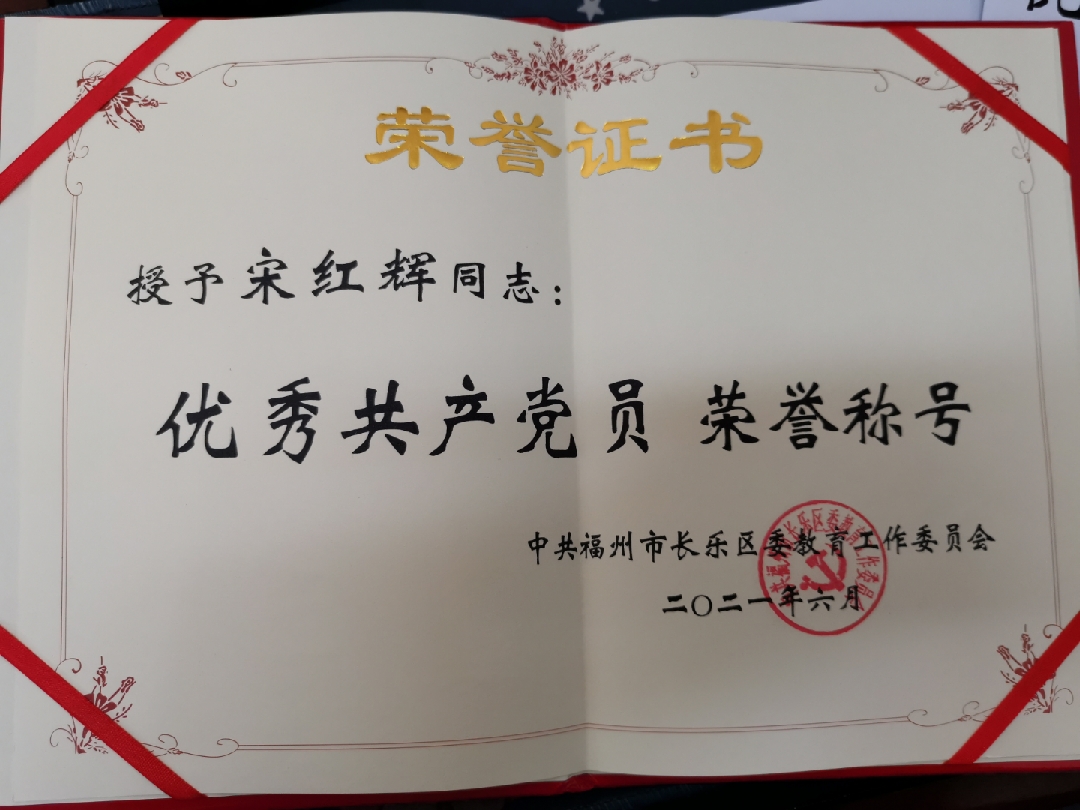 荣誉证书
授予宋红辉同志：
优秀共产党员 荣誉称号
中共福州市长乐区委教育工作委员会
二〇二一年六月